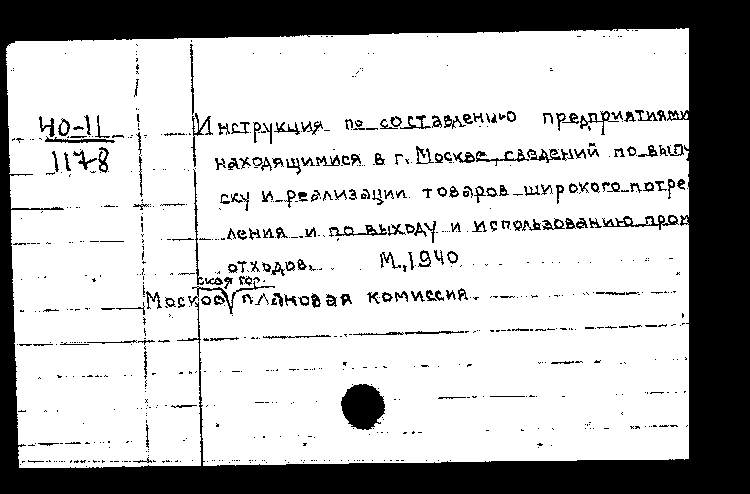 40-11
1178
Инструкция по составлению предприятиями
находящимися в г. Москве, сведений по выпу
ску и реализации товаров широкого потре
ления и по выходу и использованию пром
отходов. М., 1940
ская гор.
Москов плановая комиссия.